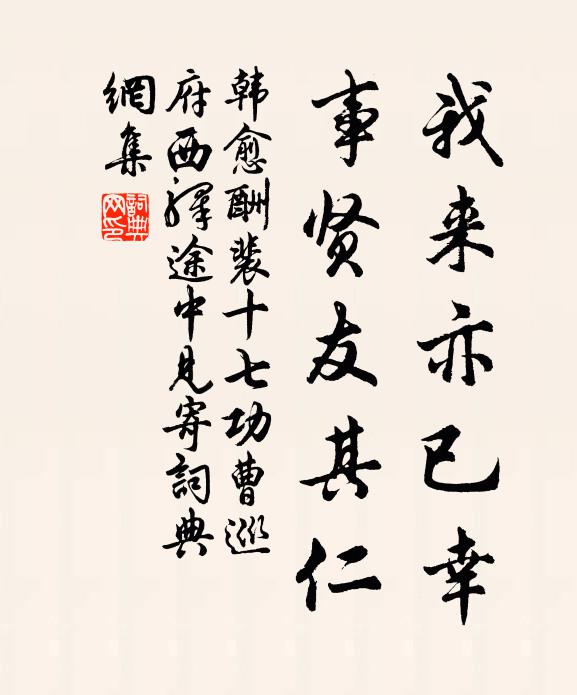 我来亦已幸
事贤友其仁
韩愈酬裴十七功曹巡
府西驿途中见寄詞典
網集
詞典
网印